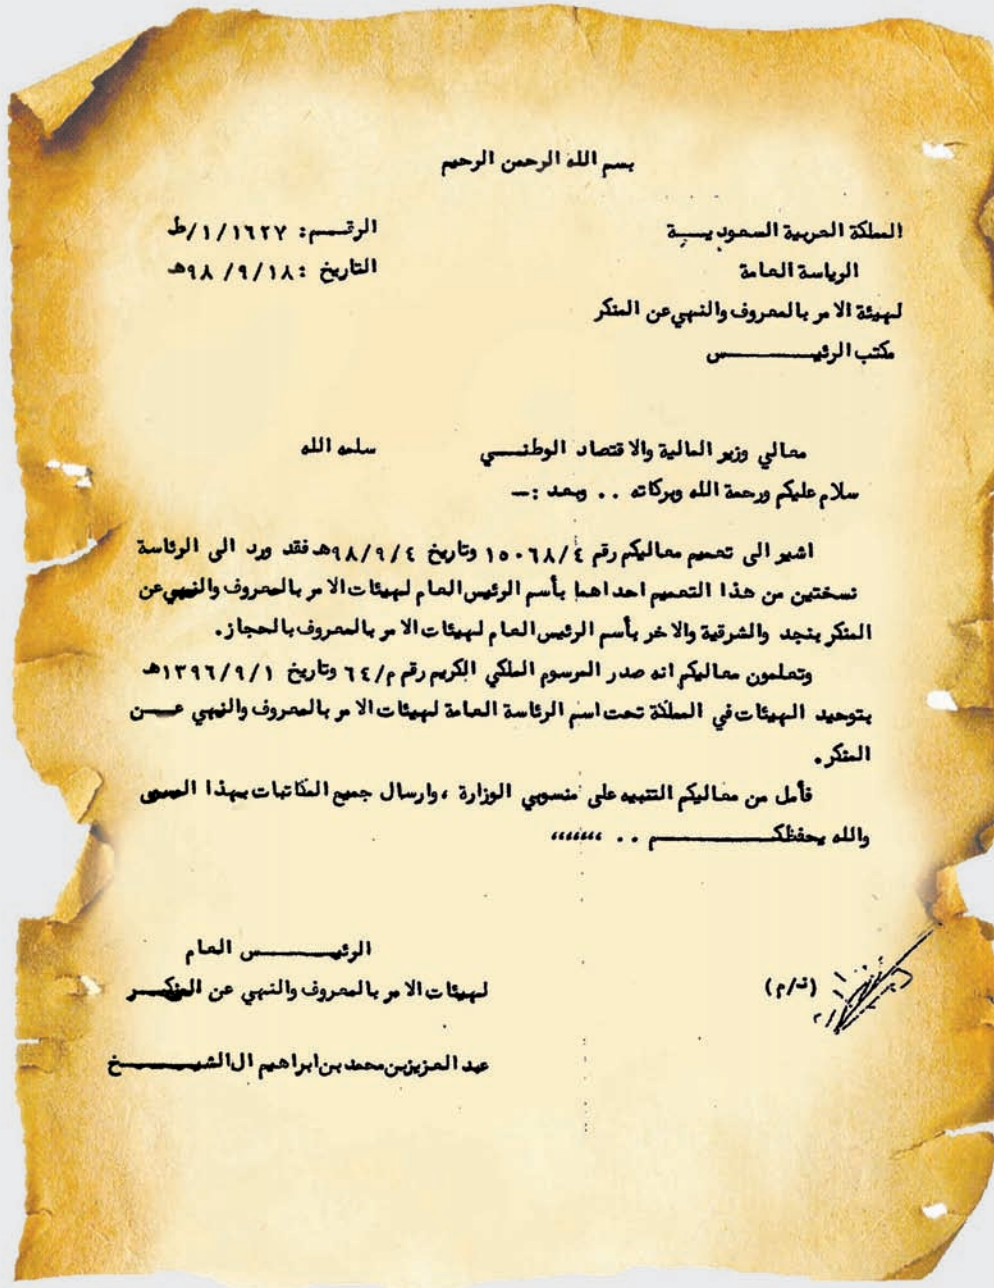 بسم الله الرحمن الرحيم
المملكة العربية السعوديـــة
الرقـــم: ١٦٢٧/١/ط
الرياسة العامة
التاريخ :٩٨/٩/١٨هـ
لهيئة الامر بالمعروف والنهي عن المنكر
مكتب الرئيــــــــس
معالي وزير المالية والاقتصاد الوطنـــي سلمه الله
سلام عليكم ورحمة الله وبركاته .. وبعد :ـ
اشير الى تعميم معاليكم رقم ١٥٠٦٨/٤ وتاريخ ٩٨/٩/٤هـ فقد ورد الى الرئاسة
نسختين من هذا التعميم احداهما بأسم الرئيس العام لهيئات الامر بالمعروف والنهي عن
المنكر بنجد والشرقية والاخر بأسم الرئيس العام لهيئات الامر بالمعروف بالحجاز.
وتعلمون معاليكم انه صدر المرسوم الملكي الكريم رقم م/٦٤ وتاريخ ١٣٩٦/٩/١هـ
بتوحيد الهيئات في المملكة تحت اسم الرئاسة العامة لهيئات الامر بالمعروف والنهي عـــن
المنكر.
فآمل من معاليكم التنبيه على منسوبي الوزارة ، وارسال جميع المكاتبات بهذا المسمى
والله يحفظكـــــــــــم .. ،،،،،،،
الرئيـــــــس العام
لهيئات الامر بالمعروف والنهي عن المنكـــر
(ف/م)
عبد العزيز بن محمد بن ابراهيم ال الشيــــــــخ